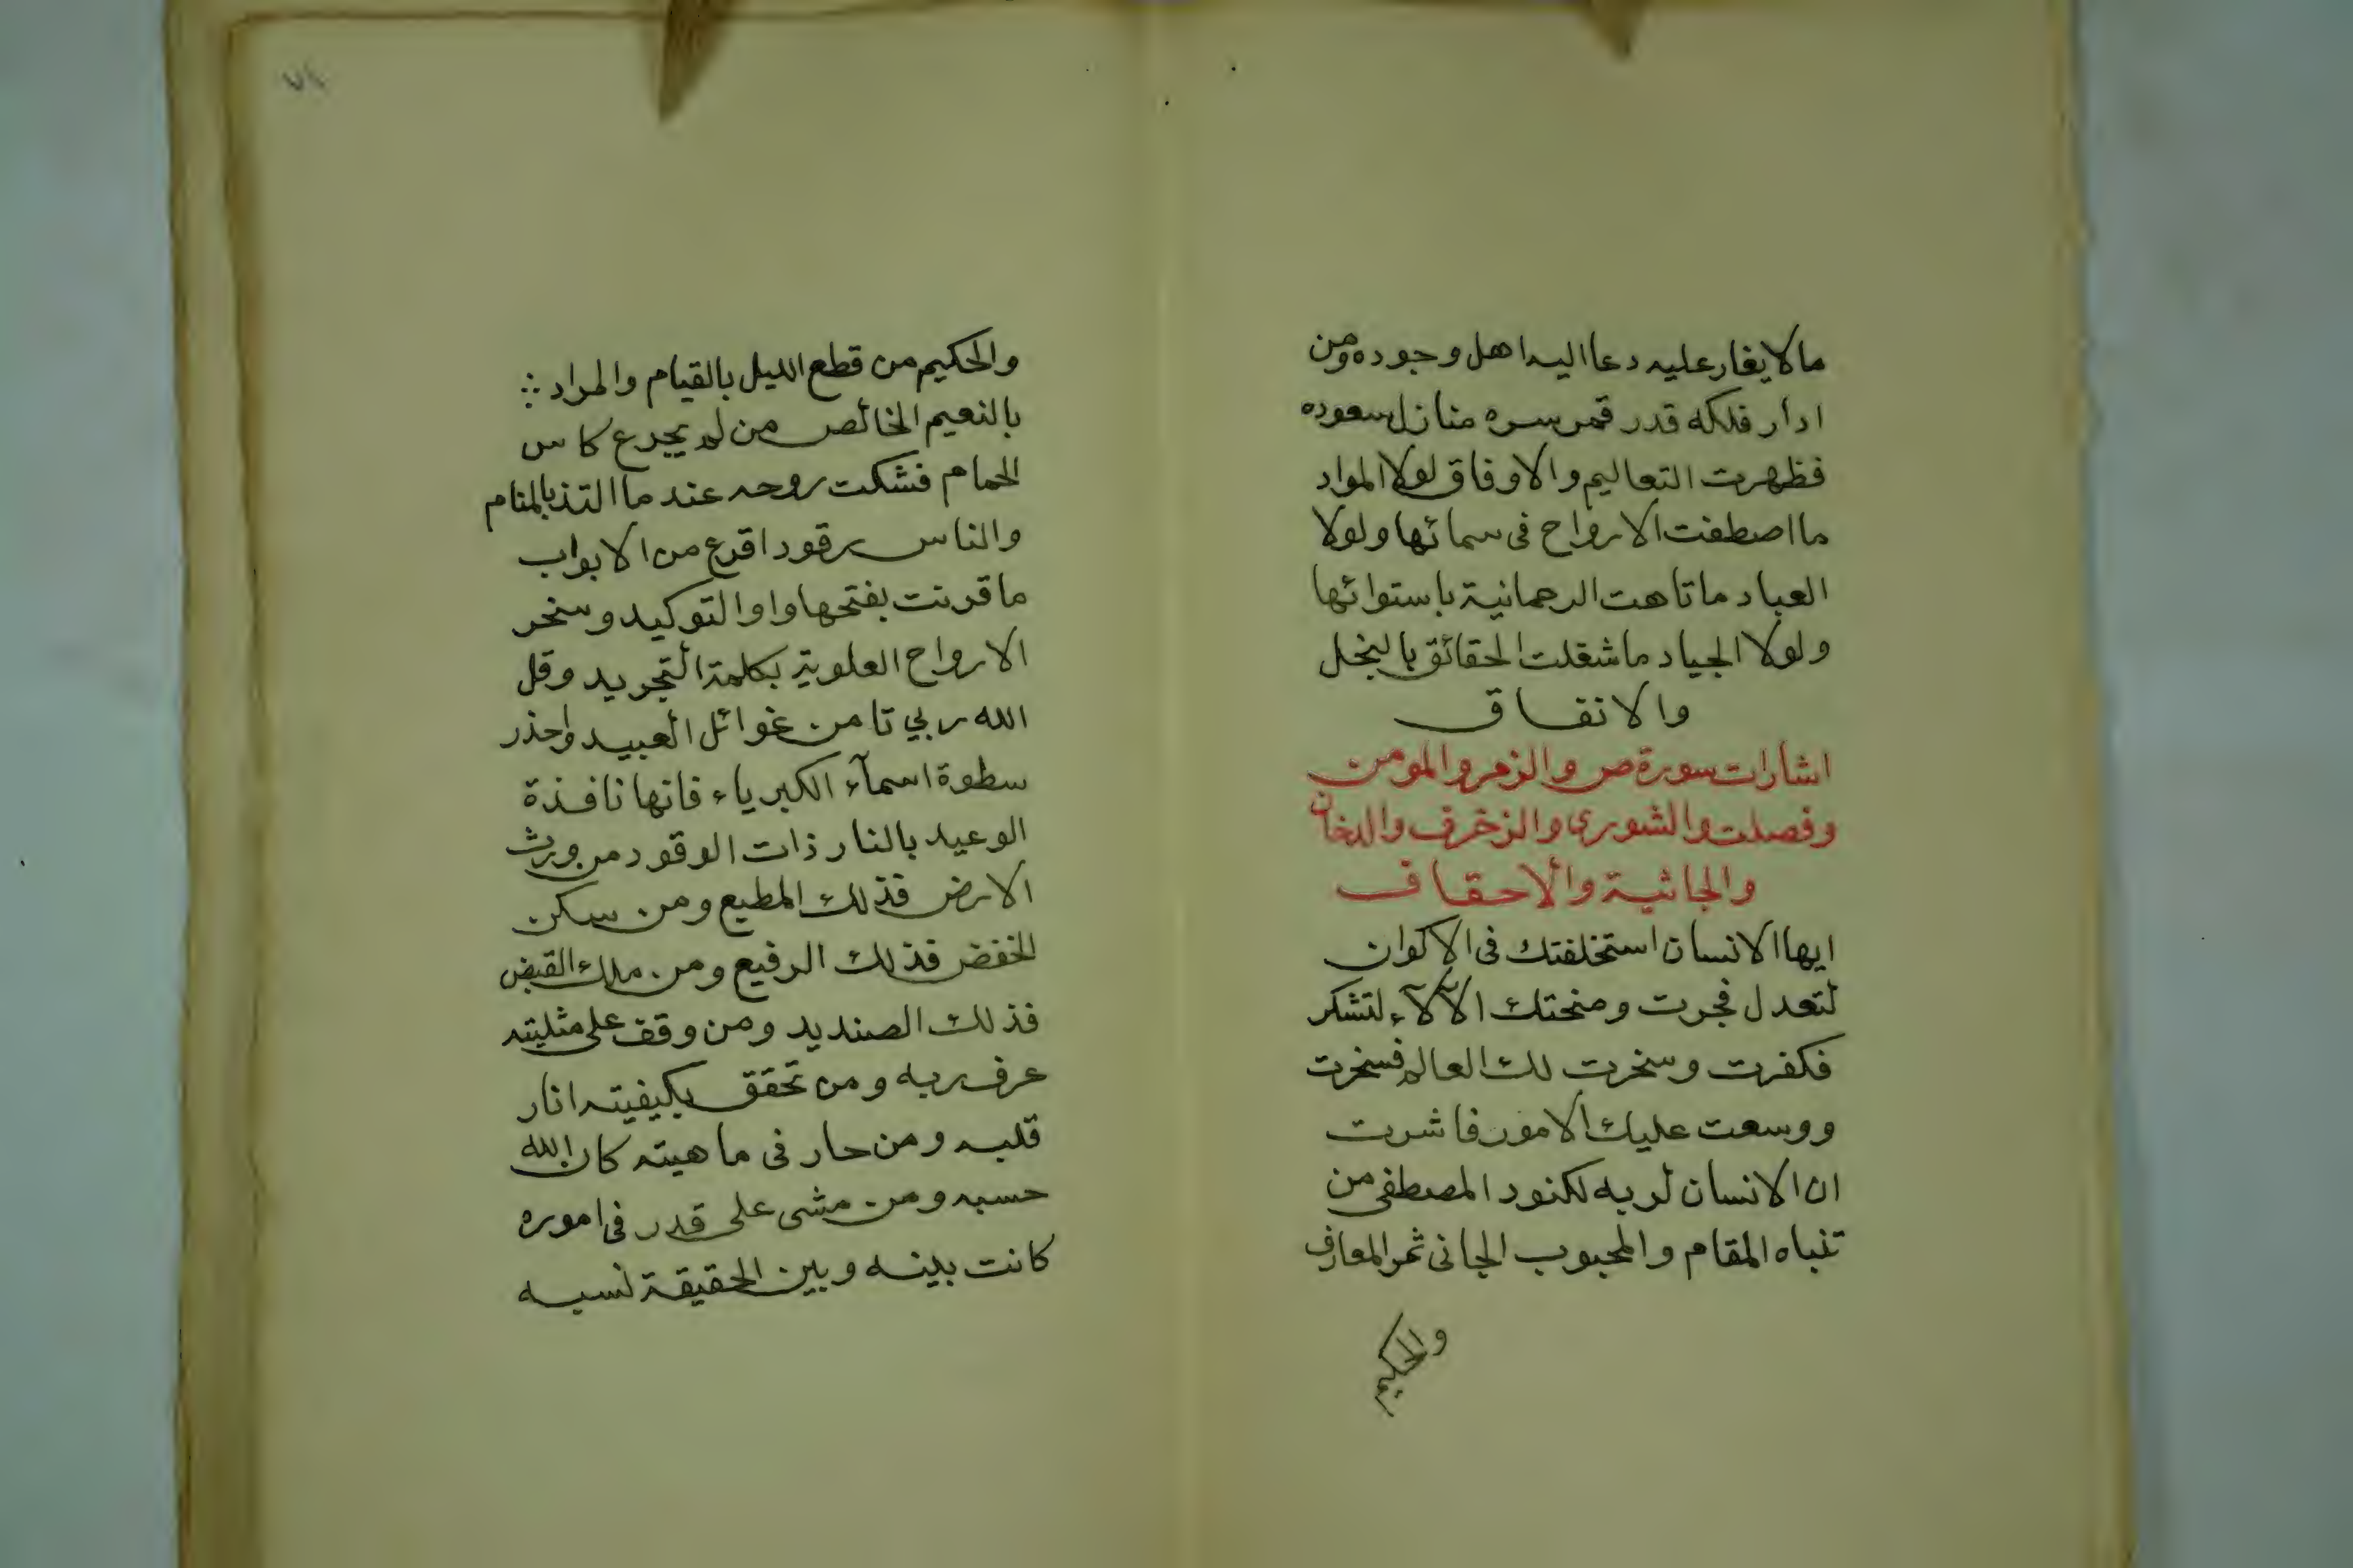 ما لا يغار عليه دعا اليه اهل وجوده ومن
ادار فلكه قدر قمر سره منازل سعوده
فظهرت التعاليم والاوفاق لولا المواد
ما اصطفت الارواح فى سمائها ولولا
العباد ما تاهت الرحمانية باستوائها
ولولا الجياد ما شغلت الحقائق بالبخل
والانفاق
اشارات سورة ص والزمر والمومن
وفصلت والشورى والزخرف والدخان
والجاثية والاحقاف
ايها الانسان استخلفتك فى الاكوان
لتعدل فجرت ومنحتك الآلاء لتشكر
فكفرت وسخرت لك العالم فسخرت
ووسعت عليك الامور فاشرت
ان الانسان لربه لكنود المصطفى من
تنباه المقام والمحبوب الجانى ثمر المعارف
والحكيم
٧١
والحكيم من قطع الليل بالقيام والمراد
بالنعيم الخالص من لم يجرع كاس
الحمام فشكت روحه عند ما التذ بالمنام
والناس رقود اقرع من الابواب
ما قرنت بفتحها واو التوكيد وسخر
الارواح العلوية بكلمة التجريد وقل
الله ربي تامن غوائل العبيد واحذر
سطوة اسمآء الكبرياء فانها نافذة
الوعيد بالنار ذات الوقود من ورث
الارض فذلك المطيع ومن سكن
الخفض فذلك الرفيع ومن ملك القبض
فذلك الصنديد ومن وقف على مثليته
عرف ربه ومن تحقق بكيفيته انار
قلبه ومن حار فى ماهيته كان الله
حسبه ومن مشى على قدر فى اموره
كانت بينه وبين الحقيقة نسبه